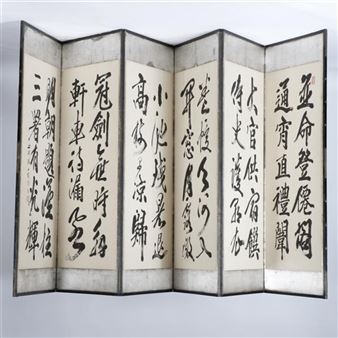 並命登僊閣
通宵直禮闈
大官供宿饌
侍史護朝衣
卷幔天河入
開窓月露微
小池殘暑退
高樹早涼歸
冠劍無時釋
軒車待漏飛
明朝題漢柱
三署有光輝